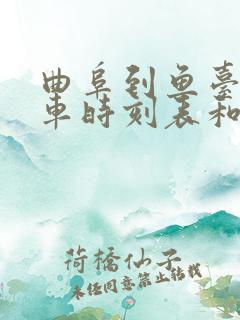 曲阜到鱼臺
车时刻表和
荷橋仙子
未经同意禁止转载